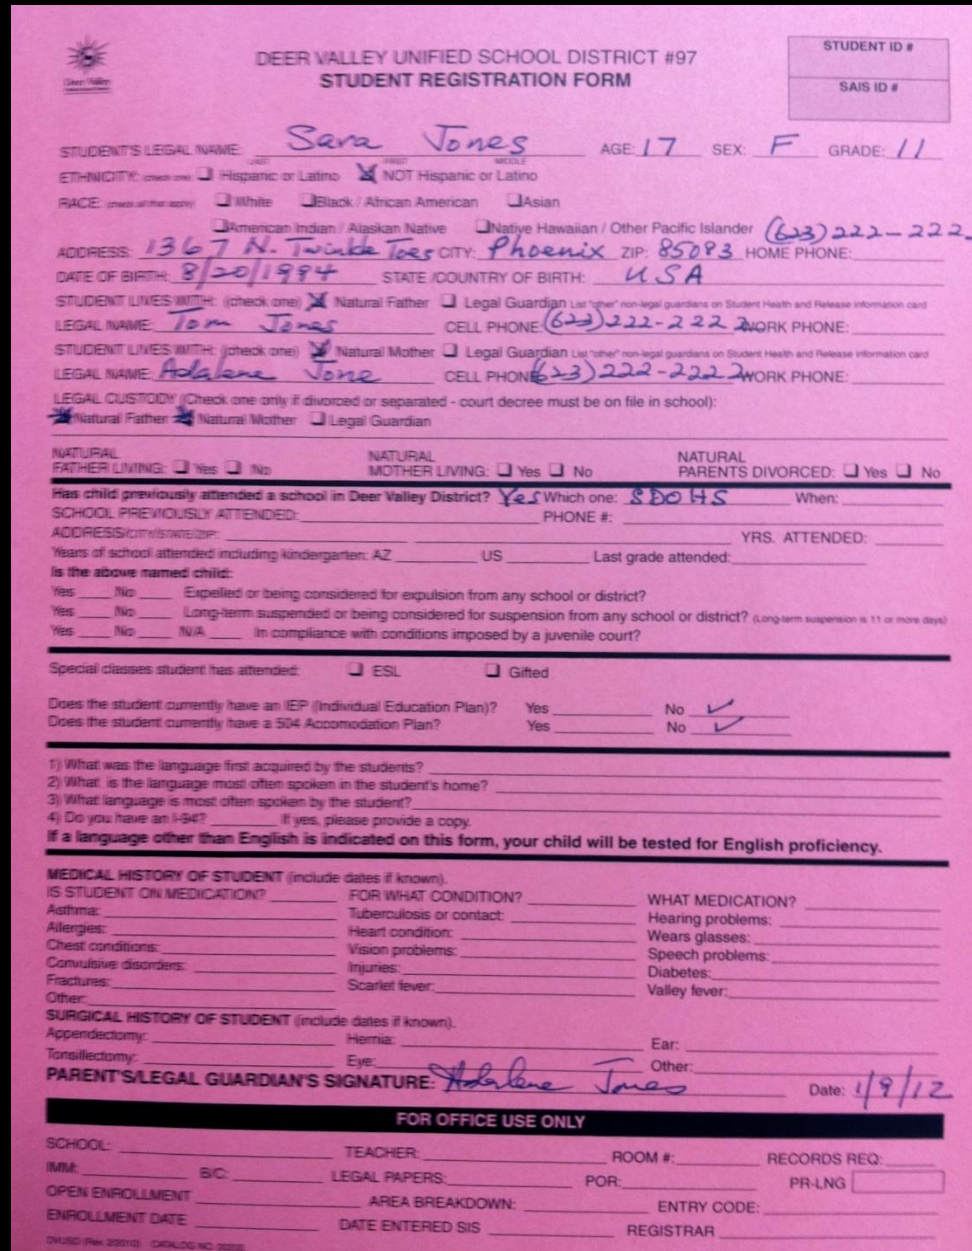 Deer Valley
DEER VALLEY UNIFIED SCHOOL DISTRICT #97
STUDENT REGISTRATION FORM
STUDENT ID #
SAIS ID #
STUDENT'S LEGAL NAME: Sara Jones AGE: 17 SEX: F GRADE: 11
LAST FIRST MIDDLE
ETHNICITY: (check one) Hispanic or Latino NOT Hispanic or Latino
RACE: (check all that apply) White Black / African American Asian
American Indian / Alaskan Native Native Hawaiian / Other Pacific Islander (623) 222-222
ADDRESS: 1367 N. Twinkle Toes CITY: Phoenix ZIP: 85083 HOME PHONE:
DATE OF BIRTH: 8/20/1994 STATE /COUNTRY OF BIRTH: USA
STUDENT LIVES WITH: (check one) Natural Father Legal Guardian List "other" non-legal guardians on Student Health and Release information card
LEGAL NAME: Tom Jones CELL PHONE: (623) 222-2222 WORK PHONE:
STUDENT LIVES WITH: (check one) Natural Mother Legal Guardian List "other" non-legal guardians on Student Health and Release information card
LEGAL NAME: Adalene Jone CELL PHONE (623) 222-2222 WORK PHONE:
LEGAL CUSTODY (Check one only if divorced or separated - court decree must be on file in school):
Natural Father Natural Mother Legal Guardian
NATURAL NATURAL NATURAL
FATHER LIVING: Yes No MOTHER LIVING: Yes No PARENTS DIVORCED: Yes No
Has child previously attended a school in Deer Valley District? Yes Which one: SDOHS When:
SCHOOL PREVIOUSLY ATTENDED: PHONE #:
ADDRESS/CITY/STATE/ZIP: YRS. ATTENDED:
Years of school attended including kindergarten: AZ US Last grade attended:
Is the above named child:
Yes No Expelled or being considered for expulsion from any school or district?
Yes No Long-term suspended or being considered for suspension from any school or district? (Long-term suspension is 11 or more days)
Yes No N/A In compliance with conditions imposed by a juvenile court?
Special classes student has attended: ESL Gifted
Does the student currently have an IEP (Individual Education Plan)? Yes No ✓
Does the student currently have a 504 Accomodation Plan? Yes No ✓
1) What was the language first acquired by the students?
2) What is the language most often spoken in the student's home?
3) What language is most often spoken by the student?
4) Do you have an I-94? If yes, please provide a copy.
If a language other than English is indicated on this form, your child will be tested for English proficiency.
MEDICAL HISTORY OF STUDENT (include dates if known).
IS STUDENT ON MEDICATION? FOR WHAT CONDITION? WHAT MEDICATION?
Asthma: Tuberculosis or contact: Hearing problems:
Allergies: Heart condition: Wears glasses:
Chest conditions: Vision problems: Speech problems:
Convulsive disorders: Injuries: Diabetes:
Fractures: Scarlet fever: Valley fever:
Other:
SURGICAL HISTORY OF STUDENT (include dates if known).
Appendectomy: Hernia: Ear:
Tonsillectomy: Eye: Other:
PARENT'S/LEGAL GUARDIAN'S SIGNATURE: Adalene Jones Date: 1/9/12
FOR OFFICE USE ONLY
SCHOOL: TEACHER: ROOM #: RECORDS REQ:
IMM: B/C: LEGAL PAPERS: POR: PR-LNG
OPEN ENROLLMENT AREA BREAKDOWN: ENTRY CODE:
ENROLLMENT DATE DATE ENTERED SIS REGISTRAR
DVUSD (Rev. 2/2010) CATALOG NO.